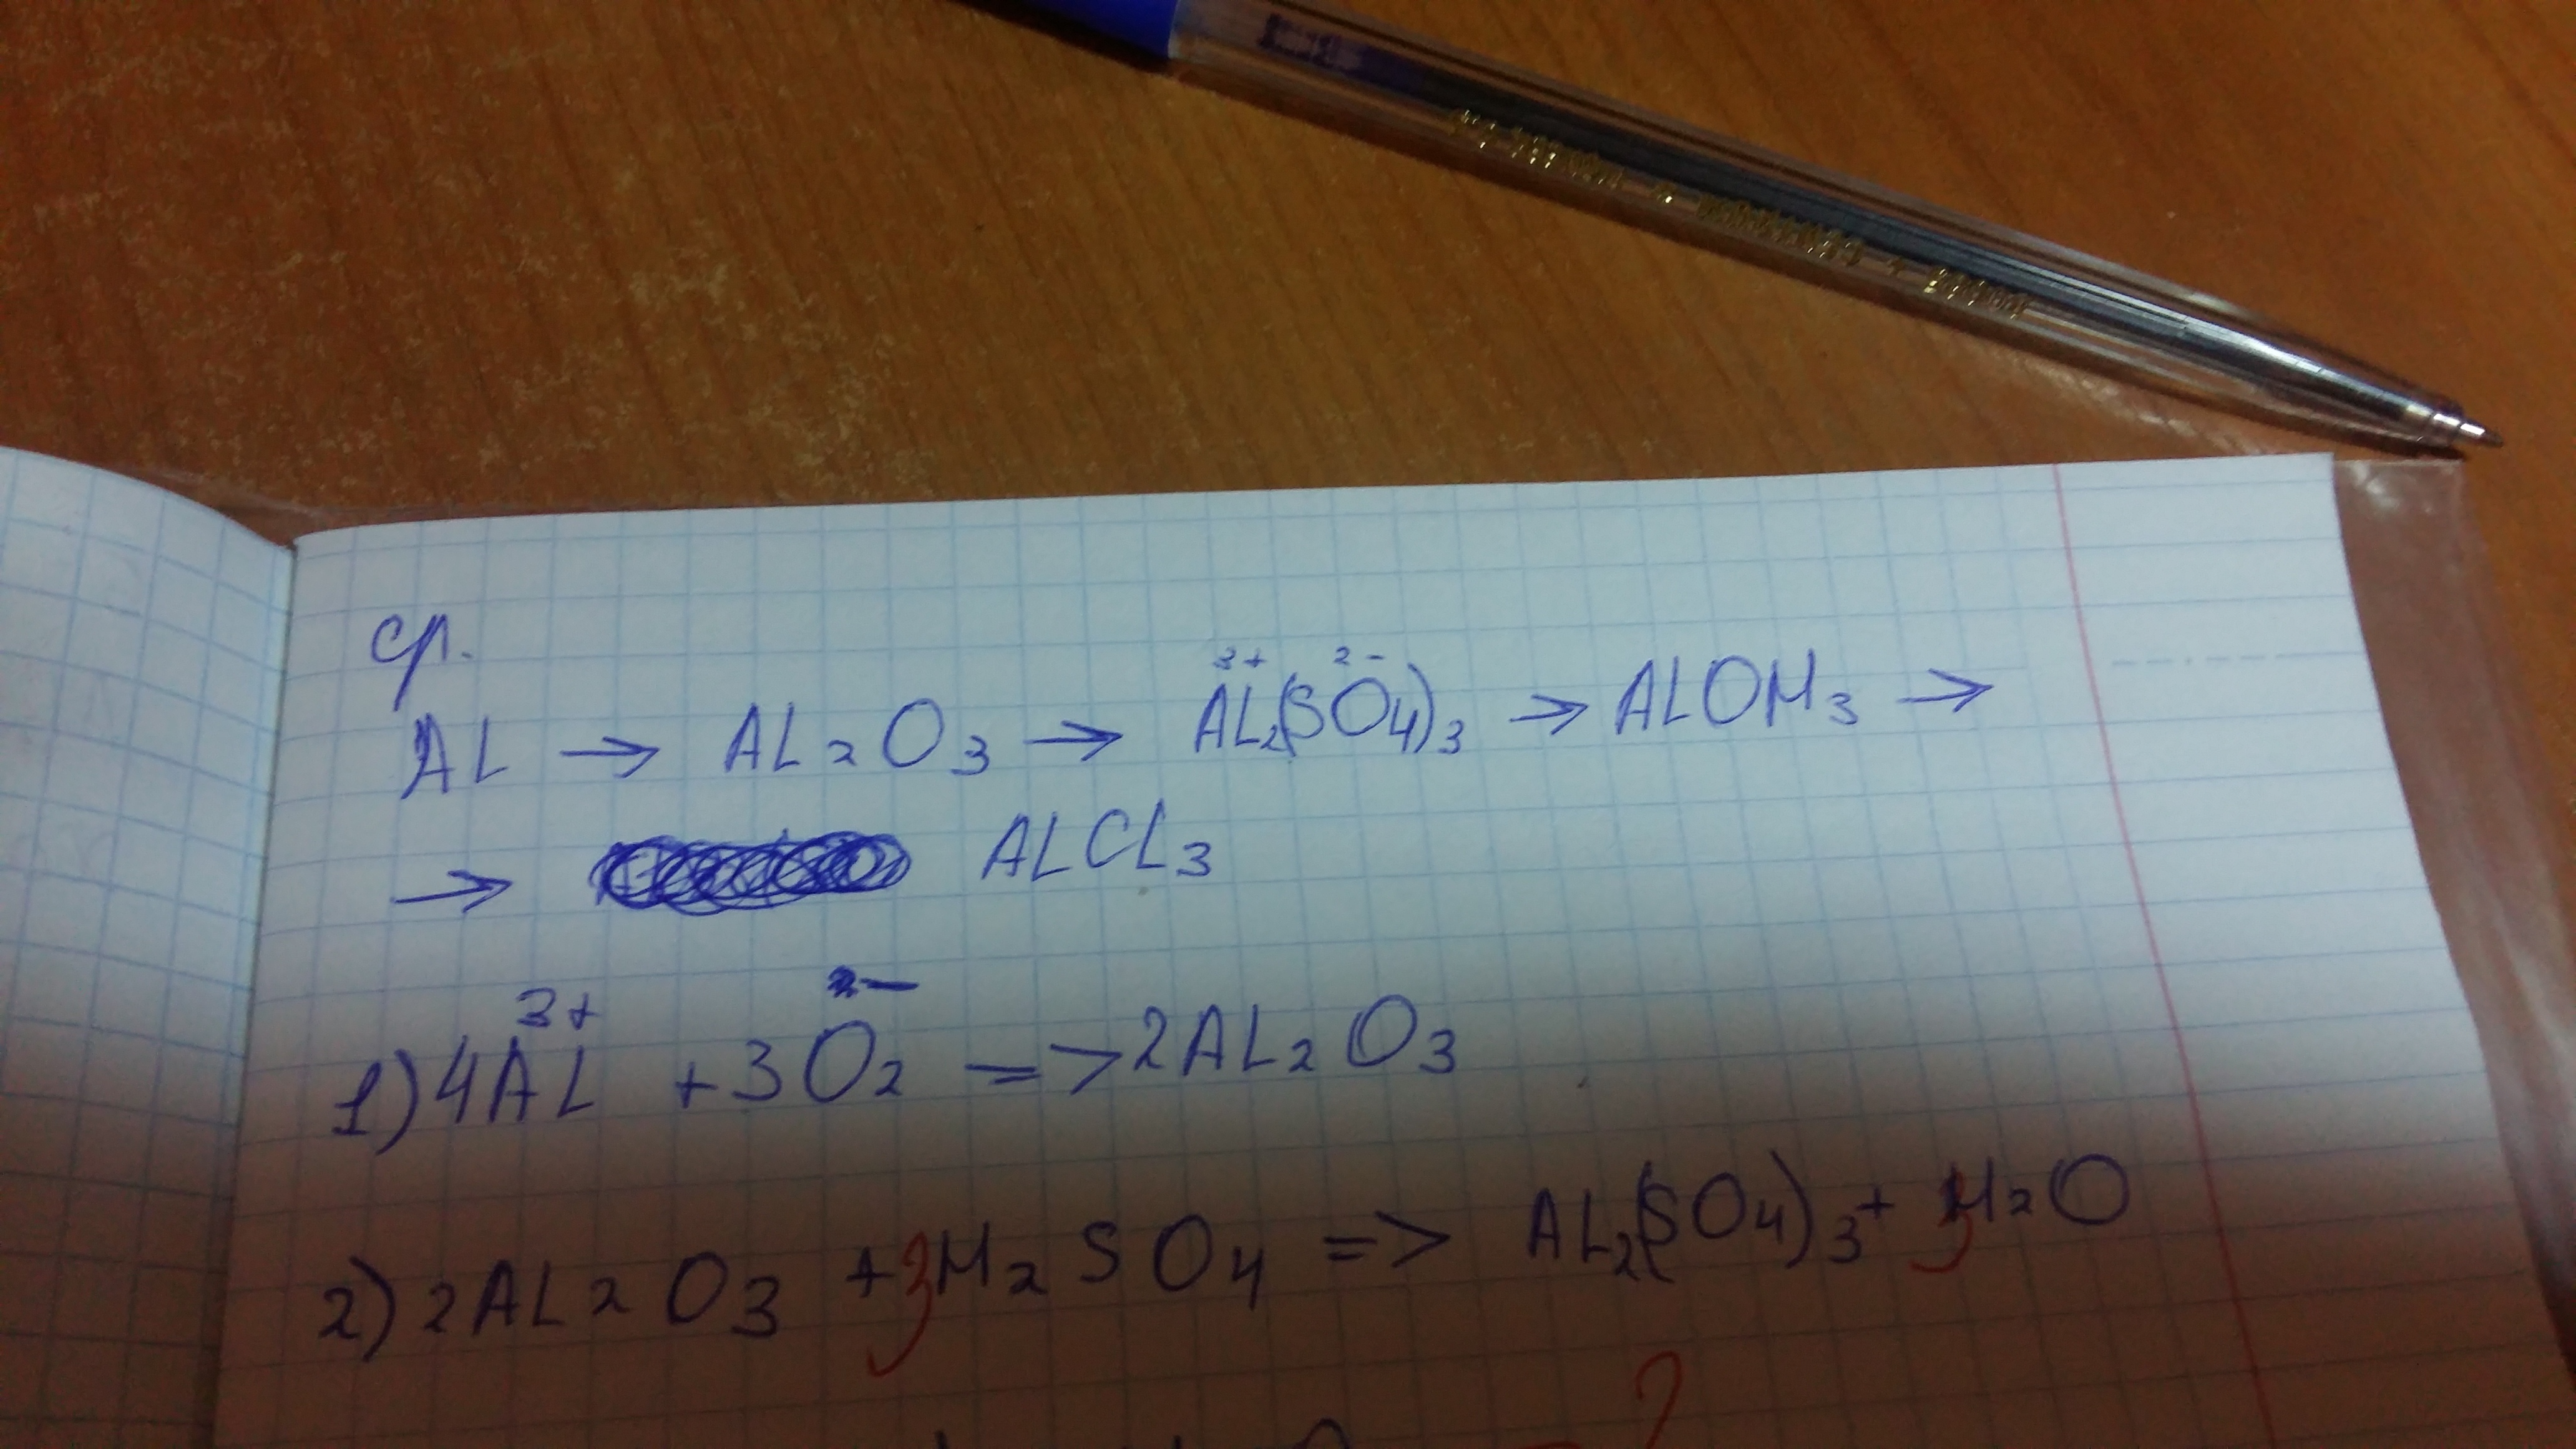 ср.
AL → AL₂O₃ → AL₂³⁺(SO₄)₃²⁻ → ALOH₃ →
→ ALCL₃
1) 4AL³⁺ + 3O₂²⁻ => 2AL₂O₃
2) 2AL₂O₃ + 3H₂SO₄ => AL₂(SO₄)₃ + 3H₂O